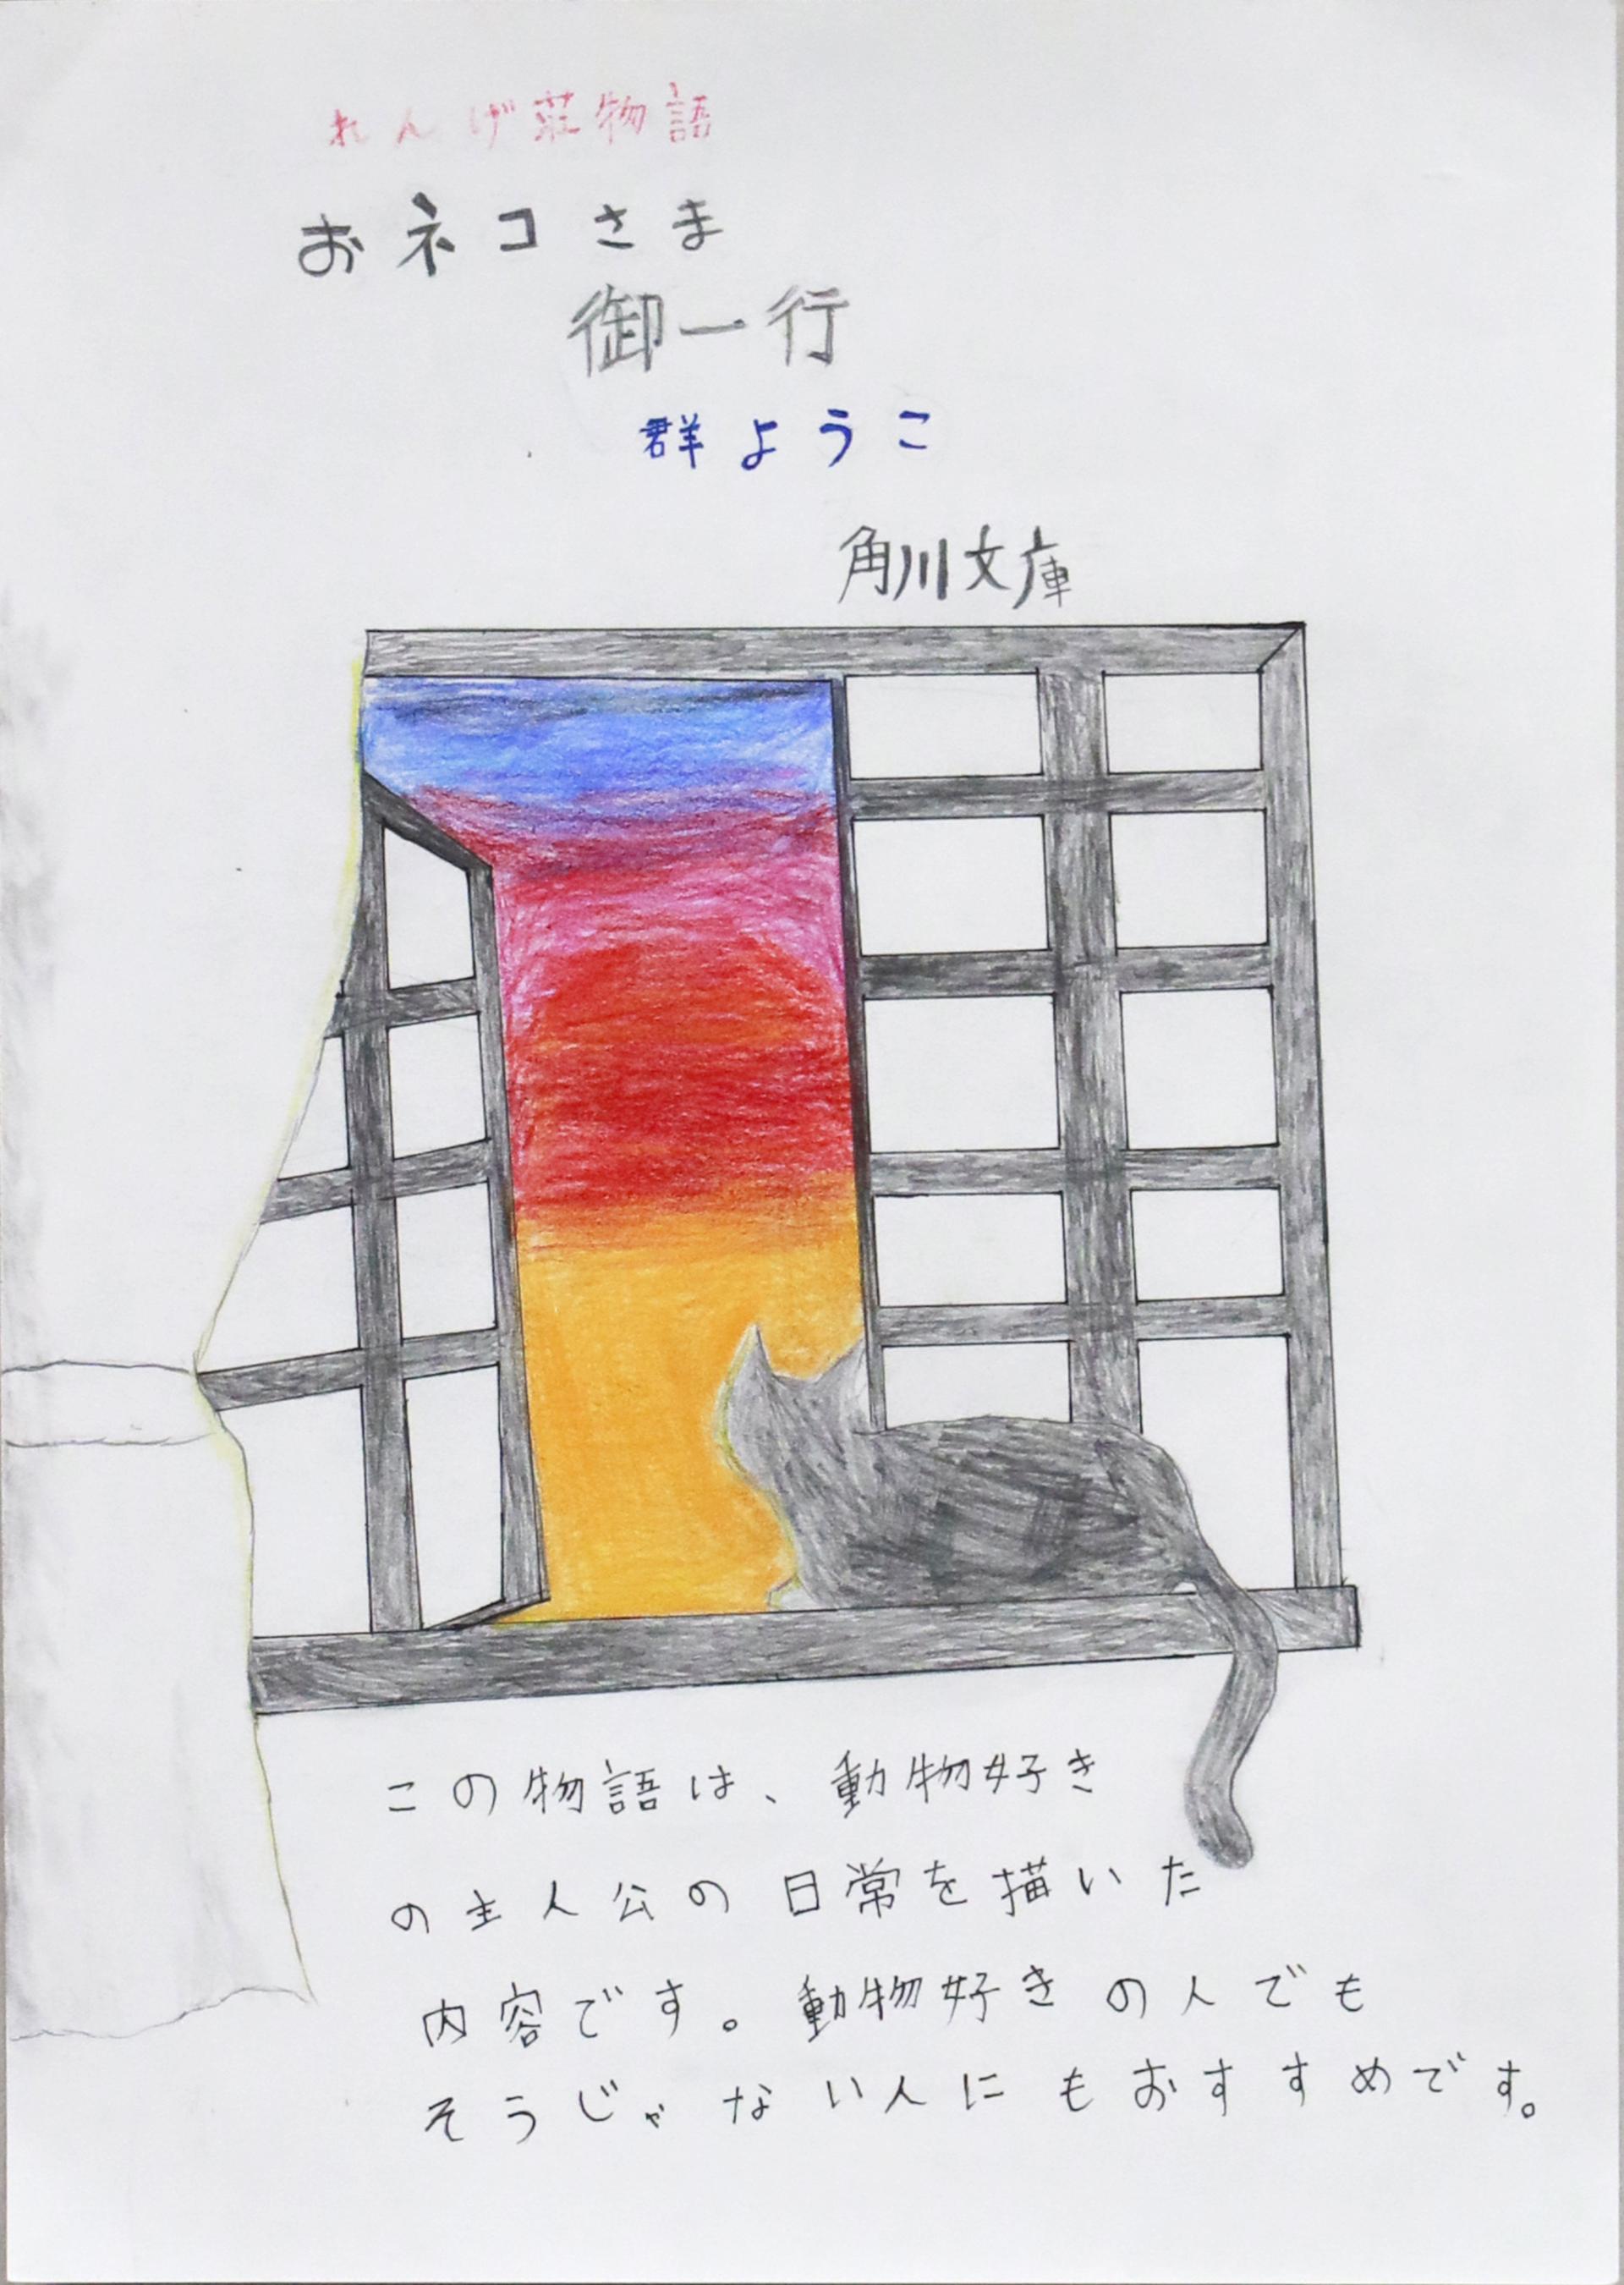 れんげ荘物語
おネコさま
御一行
群ようこ
角川文庫
この物語は、動物好き
の主人公の日常を描いた
内容です。動物好きの人でも
そうじゃない人にもおすすめです。